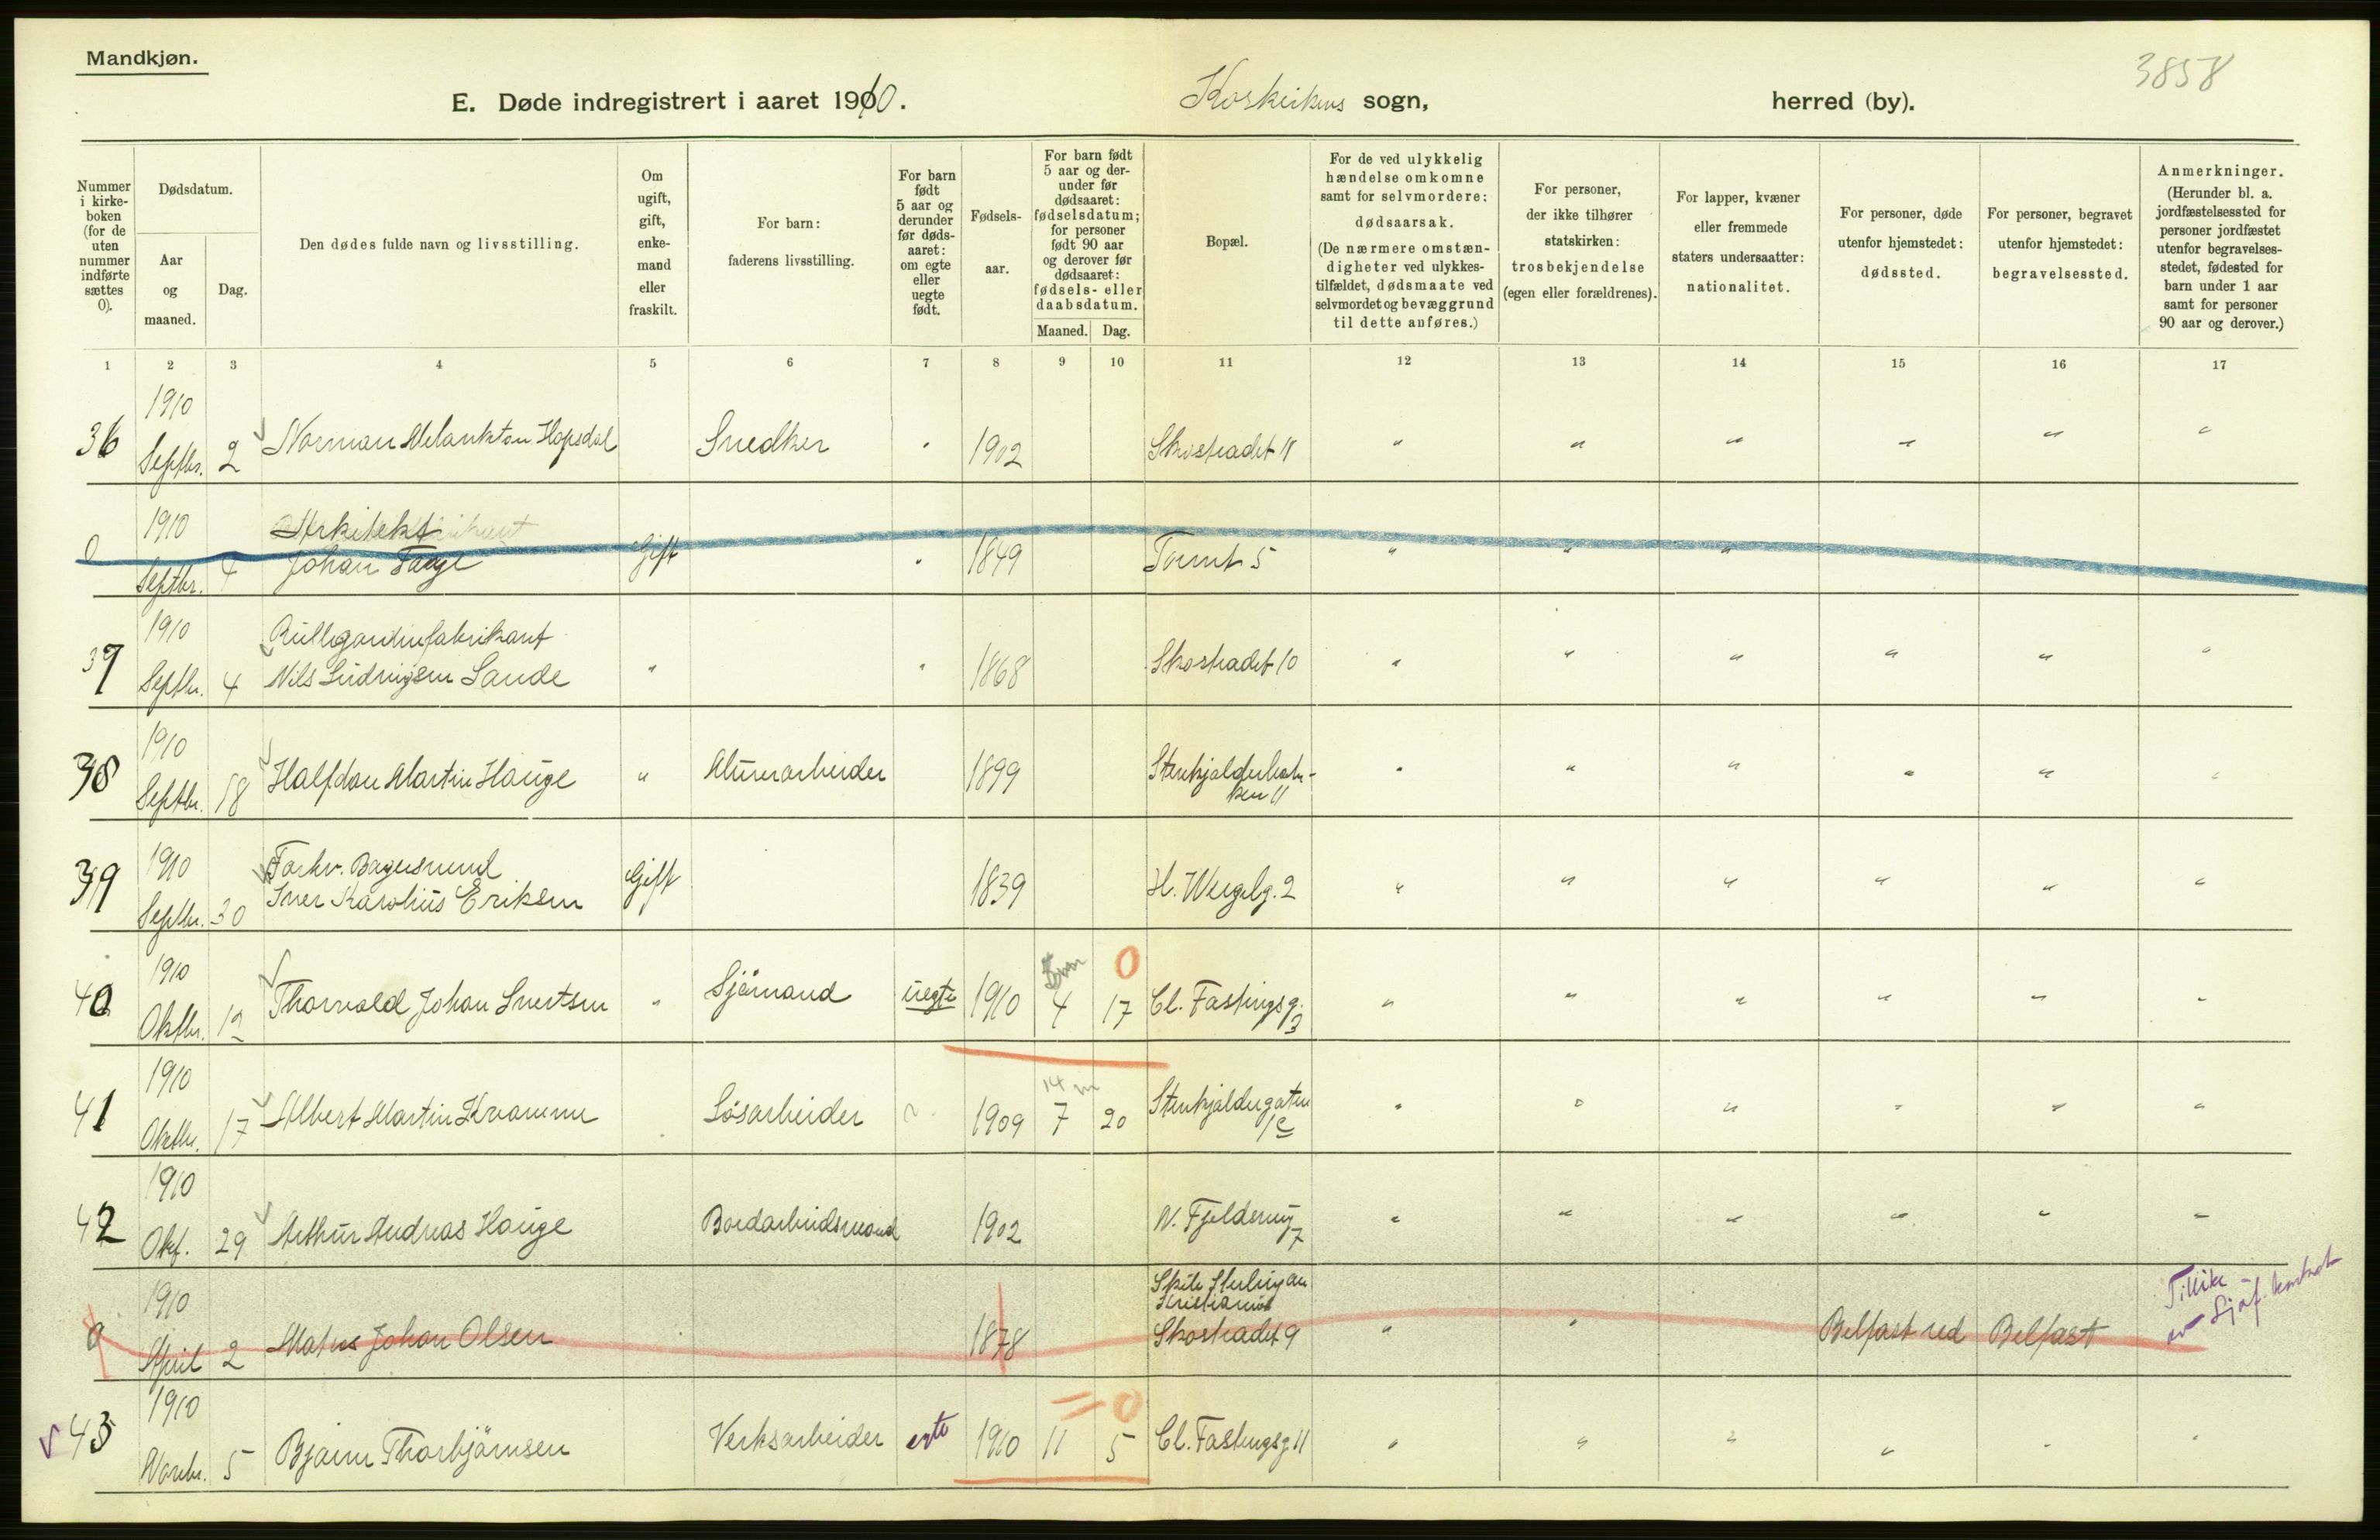 Mandkjøn.
3858
E. Døde indregistrert i aaret 1910. Korskirkens sogn, herred (by).
Nummer i kirke-boken (for de uten nummer indførte sættes 0).
Dødsdatum.
Aar og maaned.
Dag.
Den dødes fulde navn og livsstilling.
Om ugift, gift, enke-mand eller fraskilt.
For barn: faderens livsstilling.
For barn født 5 aar og derunder før døds-aaret: om egte eller uegte født.
Fødsels-aar.
For barn født 5 aar og der-under før dødsaaret: fødselsdatum; for personer født 90 aar og derover før dødsaaret: fødsels- eller daabsdatum.
Maaned. Dag.
Bopæl.
For de ved ulykkelig hændelse omkomne samt for selvmordere: dødsaarsak. (De nærmere omstæn-digheter ved ulykkes-tilfældet, dødsmaate ved selvmordet og bevæggrund til dette anføres.)
For personer, der ikke tilhører statskirken: trosbekjendelse (egen eller forældrenes).
For lapper, kvæner eller fremmede staters undersaatter: nationalitet.
For personer, døde utenfor hjemstedet: dødssted.
For personer, begravet utenfor hjemstedet: begravelsessted.
Anmerkninger. (Herunder bl. a. jordfæstelsessted for personer jordfæstet utenfor begravelses-stedet, fødested for barn under 1 aar samt for personer 90 aar og derover.)
1 2 3 4 5 6 7 8 9 10 11 12 13 14 15 16 17
36 1910 Septbr. 2 Norman Melankton Hopsdal Snedker " 1902 Skostrædet 11 " " " " " "
0 1910 Septbr. 4 Arkitekt Johan Gift " 1849 5 " " "
37 1910 Septbr. 4 Rullegardinfabrikant Nils Ludvigsen Sande " " 1868 Skostrædet 10 " " " " " "
38 1910 Septbr. 18 Halfdan Martin Hauge " Murerarbeider 1899 Stenkjelderbakken 11 " " " " " "
39 1910 Septbr. 30 Forhv. Bagersvend Iver Karolius Eriksen Gift 1839 H. Wergelg. 2 " " " " " "
40 1910 Oktbr. 12 Thorvald Johan Sivertsen " Sjömand uegte 1910 4 17 0 Cl. Fastingsg. 3 " " " " " "
41 1910 Oktbr. 17 Albert Martin Kvamme Løsarbeider 1909 14 m 7 20 Stenkjeldergaten 1c " " " " " "
42 1910 Okt. 29 Arthur Andreas Hauge Bordarbeidsmand 1902 N. Fjeldsmug 7 " " " " " "
0 1910 April 2 Johan Olsen 1878 Kristiania Skostrædet 9 " " Belfast red Belfast Tillike
43 1910 Novbr. 5 Bjarne Thorbjörnsen Verksarbeider egte 1910 11 5 = 0 Cl. Fastingsg 11 " " " " " "